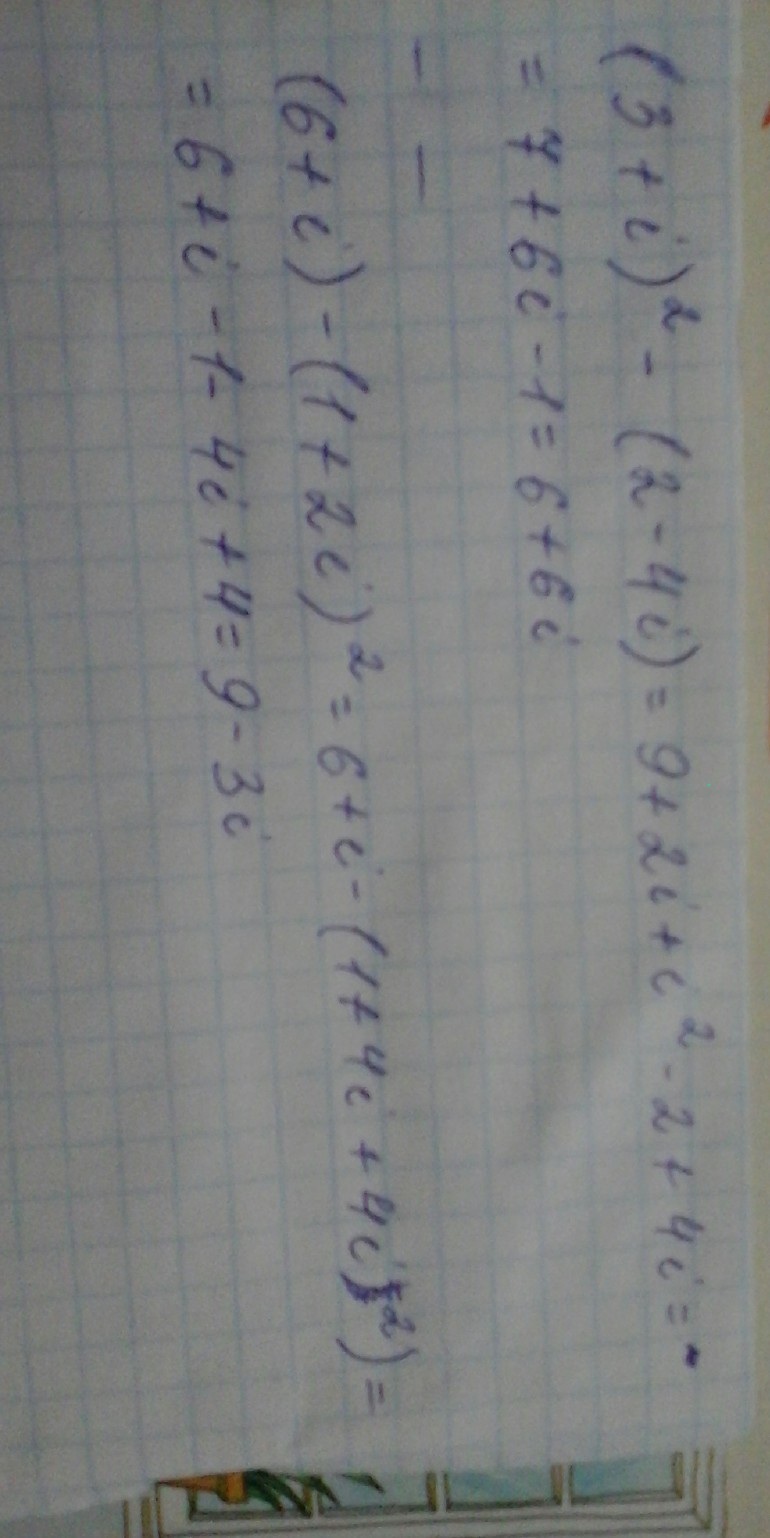 (3+i)² - (2-4i) = 9+2i+i² - 2+4i =
= 7+6i-1 = 6+6i
– —
(6+i) - (1+2i)² = 6+i-(1+4i+4i²) =
= 6+i-1-4i+4 = 9-3i